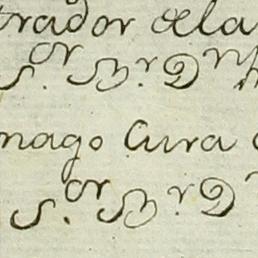 trador dela
S.or Br. Dn
mago Cura
S.or Br. D